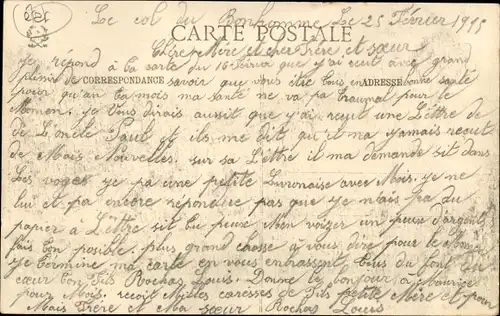 Le col du Bonhomme Le 25 Février 1915
CARTE POSTALE
Chère Mère et cher Frère et sœur
je répond à ta carte du 16 Février que j'ai reçut avec grand
plaisir de CORRESPONDANCE savoir que vous ête tous en ADRESSE bonne santé
pour qu'an ta mois ma santé ne va pa traumal pour le
Moment. je Vous dirais aussit que j'ai reçut une Lettre de
de L'oncle Paul et ils me dit qu'il m'a jamais recut
de Mais Nouvelles. sur sa Lettre il ma demande sit dans
Les voges je pa une petite Livronaise avec Mois. je ne
lui et pa encore répondre pas que je n'ais pa du
papier à Lettre sit tu peux Men voizer un peux d'argent
fais ton posible. plus grand chosse à vous dire pour le Mome
je termine ma carte en vous enbrassent tous du fond du
cœur ton Fils Rochas Louis. Donne le bonjour à Maurice
pour Mois. recoit Milles caresses de Fils petite Mère et pour
Mais Frère et Ma sœur Rochas Louis